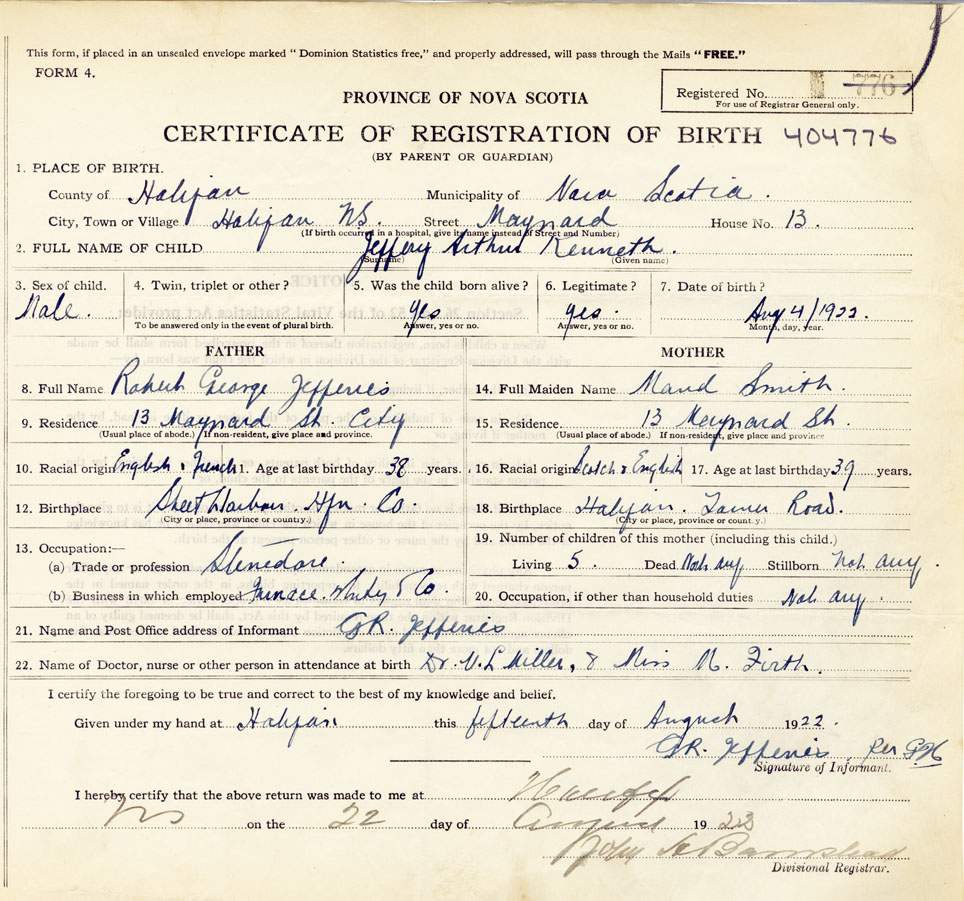 This form, if placed in an unsealed envelope marked "Dominion Statistics free," and properly addressed, will pass through the Mails "FREE."
FORM 4.
Registered No. 776
For use of Registrar General only.
PROVINCE OF NOVA SCOTIA
CERTIFICATE OF REGISTRATION OF BIRTH 404776
(BY PARENT OR GUARDIAN)
1. PLACE OF BIRTH.
County of Halifax Municipality of Nova Scotia.
City, Town or Village Halifax N.S. Street Maynard House No. 13.
(If birth occurred in a hospital, give its name instead of Street and Number)
2. FULL NAME OF CHILD Jeffery Arthur Kenneth.
(Surname) (Given name)
3. Sex of child. 4. Twin, triplet or other? 5. Was the child born alive? 6. Legitimate? 7. Date of birth?
Male. yes yes. Aug 4/1922.
To be answered only in the event of plural birth. Answer, yes or no. Answer, yes or no. Month, day, year.
FATHER MOTHER
8. Full Name Robert George Jefferies 14. Full Maiden Name Maud Smith.
9. Residence 13 Maynard St. City 15. Residence. 13 Maynard St.
(Usual place of abode.) If non-resident, give place and province. (Usual place of abode.) If non-resident, give place and province
10. Racial origin English & French 11. Age at last birthday 38 years. 16. Racial origin Scotch & English 17. Age at last birthday 39 years.
12. Birthplace Sheet Harbour. Hfx. Co. 18. Birthplace Halifax. Tower Road.
(City or place, province or county.) (City or place, province or county.)
13. Occupation:— 19. Number of children of this mother (including this child.)
(a) Trade or profession Stevedore. Living 5. Dead Not any Stillborn Not any.
(b) Business in which employed Furnace. Withy & Co. 20. Occupation, if other than household duties Not any.
21. Name and Post Office address of Informant G.R. Jefferies
22. Name of Doctor, nurse or other person in attendance at birth Dr. V. L Miller, & Miss M. Firth.
I certify the foregoing to be true and correct to the best of my knowledge and belief.
Given under my hand at Halifax. this fifteenth day of August 1922.
G.R. Jefferies, per
Signature of Informant.
I hereby certify that the above return was made to me at Halifax
NS on the 22 day of August 19
John
Divisional Registrar.